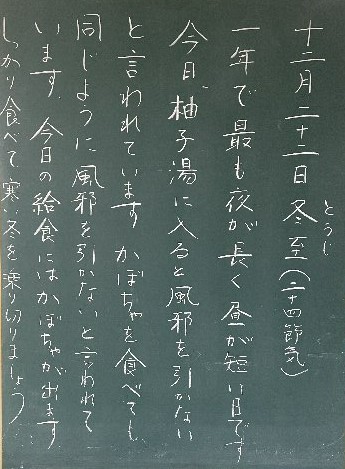 十二月二十二日 冬至(二十四節気)
とうじ
一年で最も夜が長く昼が短い日です
今日、柚子湯に入ると風邪を引かない
と言われています かぼちゃを食べても、
同じように風邪を引かないと言われて
います。今日の給食にはかぼちゃが出ます
しっかり食べて寒い冬を乗り切りましょう